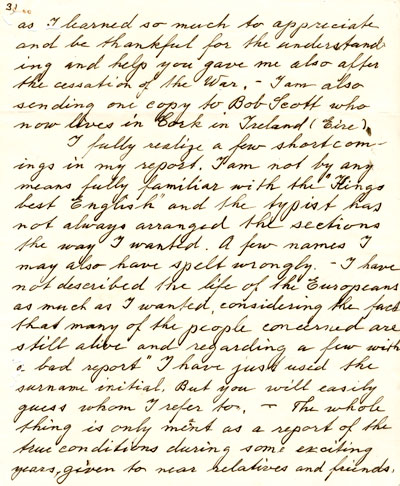 3/
as I learned so much to appreciate
and be thankful for the understand
ing and help you gave me also after
the cessation of the War. - I am also
sending one copy to Bob Scott who
now lives in Cork in Ireland (Eire).
I fully realize a few shortcom-
ings in my report. I am not by any
means fully familiar with the "Kings
best English" and the typist has
not always arranged the sections
the way I wanted. A few names I
may also have spelt wrongly. - I have
not described the life of the Europeans
as much as I wanted, considering the fact
that many of the people concerned are
still alive and regarding a few with
a bad report" I have just used the
surname initial. But you will easily
guess whom I refer to. - The whole
thing is only ment as a report of the
true conditions during some exciting
years, given to near relatives and friends.